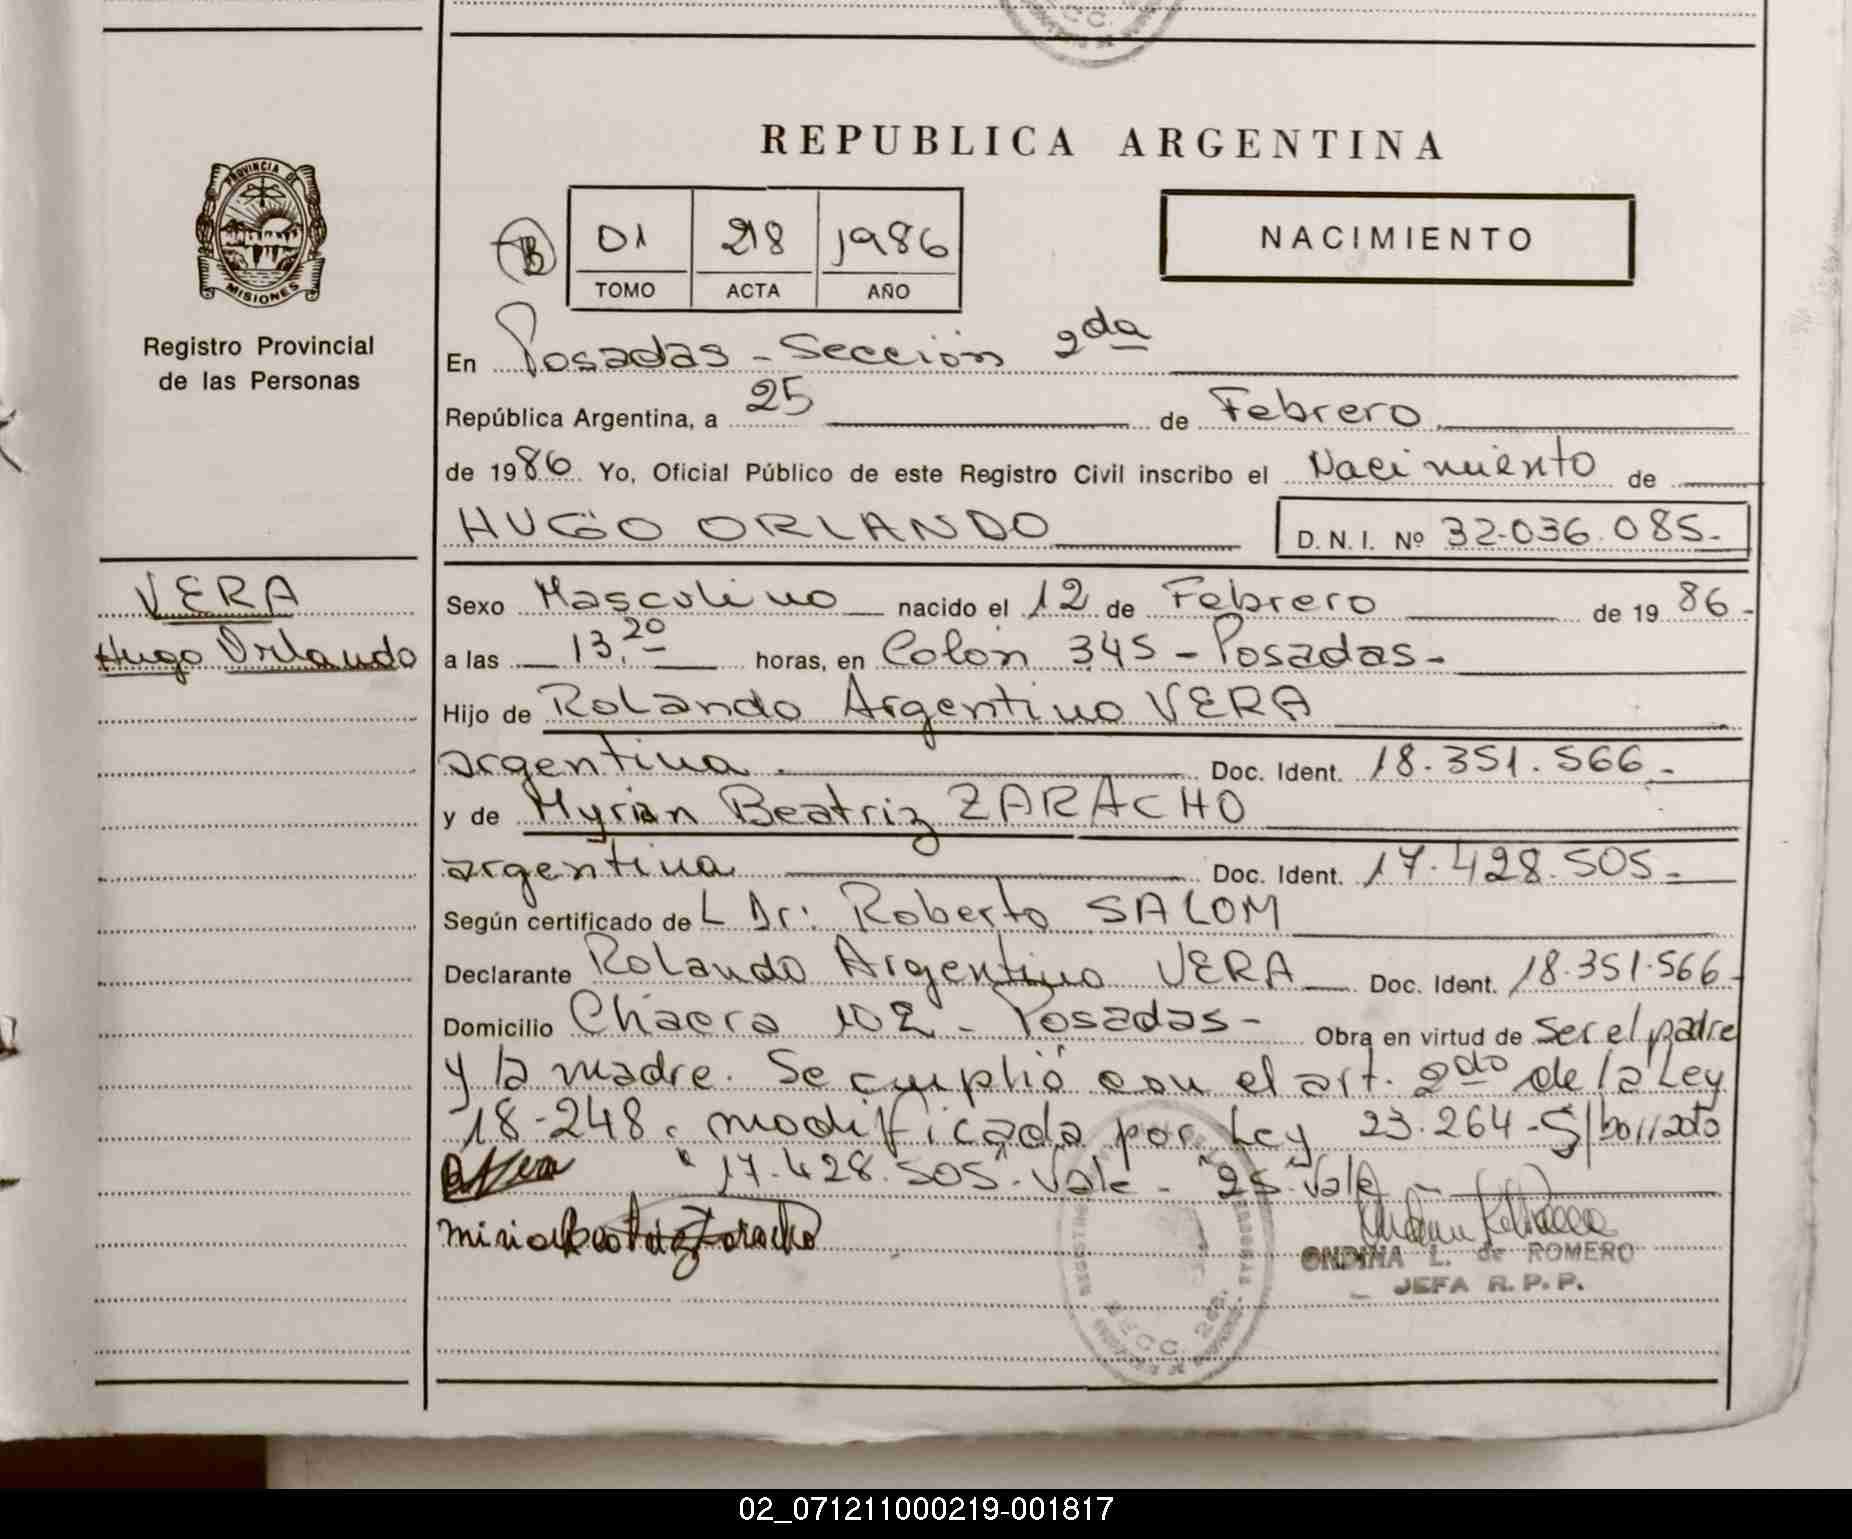 REPUBLICA ARGENTINA
PROVINCIA DE
MISIONES
Registro Provincial
de las Personas
B
01 218 1986
TOMO ACTA AÑO
NACIMIENTO
En Posadas - Sección 2da
República Argentina, a 25 de Febrero
de 1986 Yo, Oficial Público de este Registro Civil inscribo el Nacimiento de
HUGO ORLANDO D. N. I. Nº 32.036.085.-
VERA
Hugo Orlando
Sexo Masculino nacido el 12 de Febrero de 1986.-
a las 13,20 horas, en Colón 345 - Posadas.-
Hijo de Rolando Argentino VERA
argentina Doc. Ident. 18.351.566.-
y de Myrian Beatriz ZARACHO
argentina Doc. Ident. 17.428.505.-
Según certificado del Dr: Roberto SALOM
Declarante Rolando Argentino VERA Doc. Ident. 18.351.566.-
Domicilio Chacra 102 - Posadas - Obra en virtud de ser el padre
y la madre. Se cumplió con el art. 2do de la Ley
18-248. modificada por Ley 23.264 - S/borrado
"17.428.505". Vale - "25" Vale -
ONDINA L. de ROMERO
JEFA R. P. P.
02_071211000219-001817